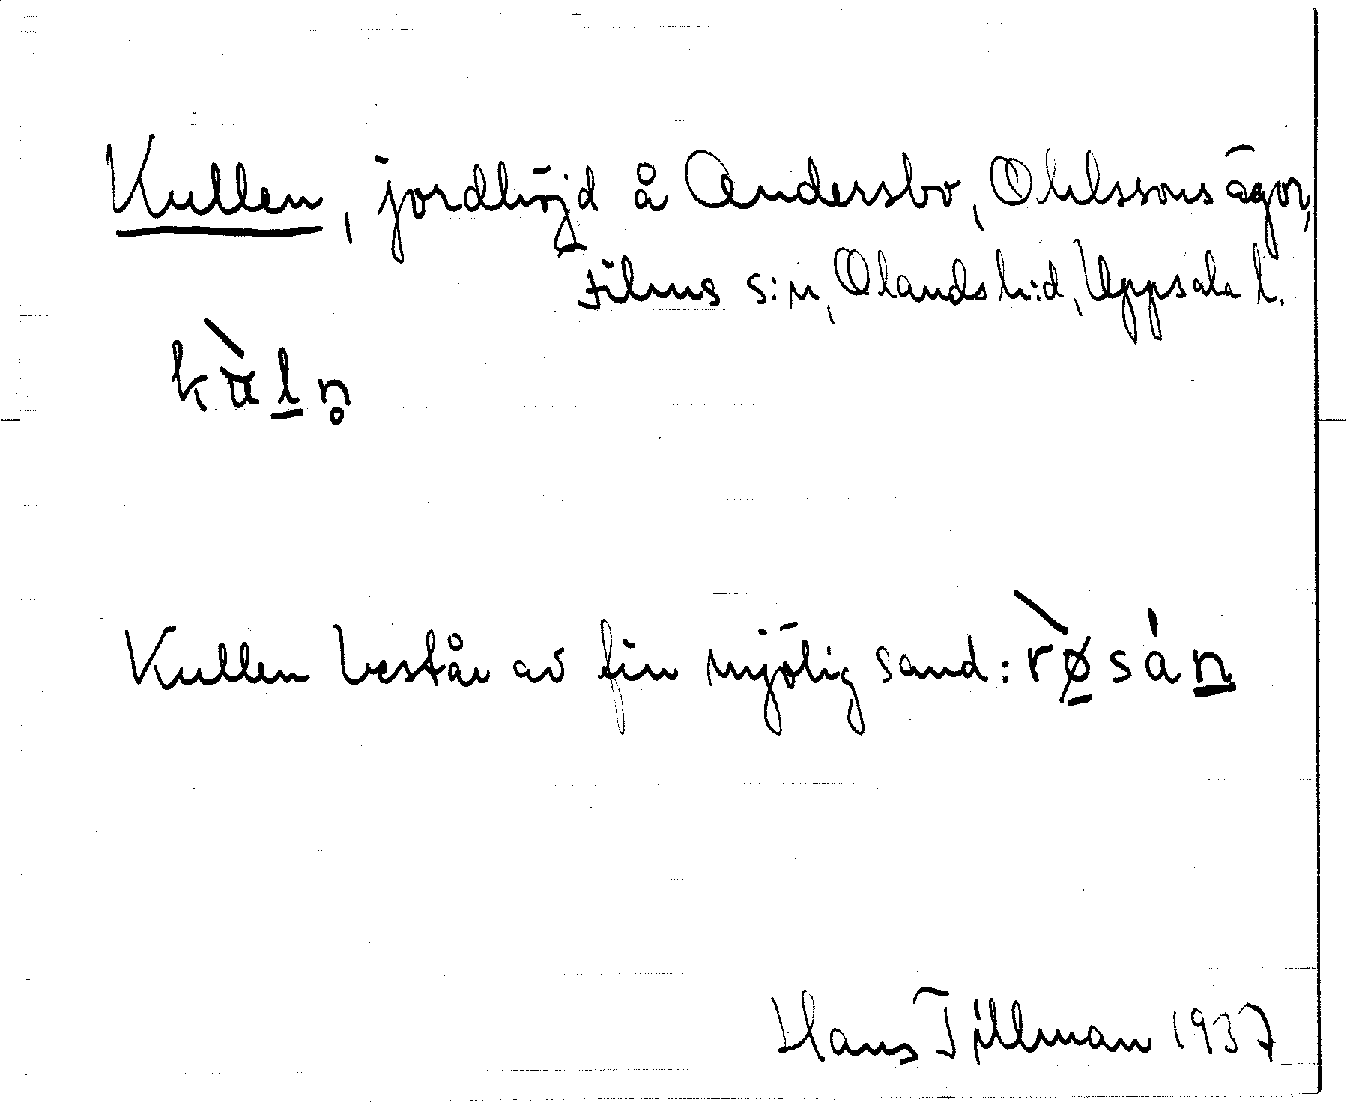 Kullen, jordhöjd å Andersbo, Ohlssons ägor,
Films s:n, Olands h:d, Uppsala l.
Kullen består av fin mjölig sand: rø̀sán
Hans Tillman 1937